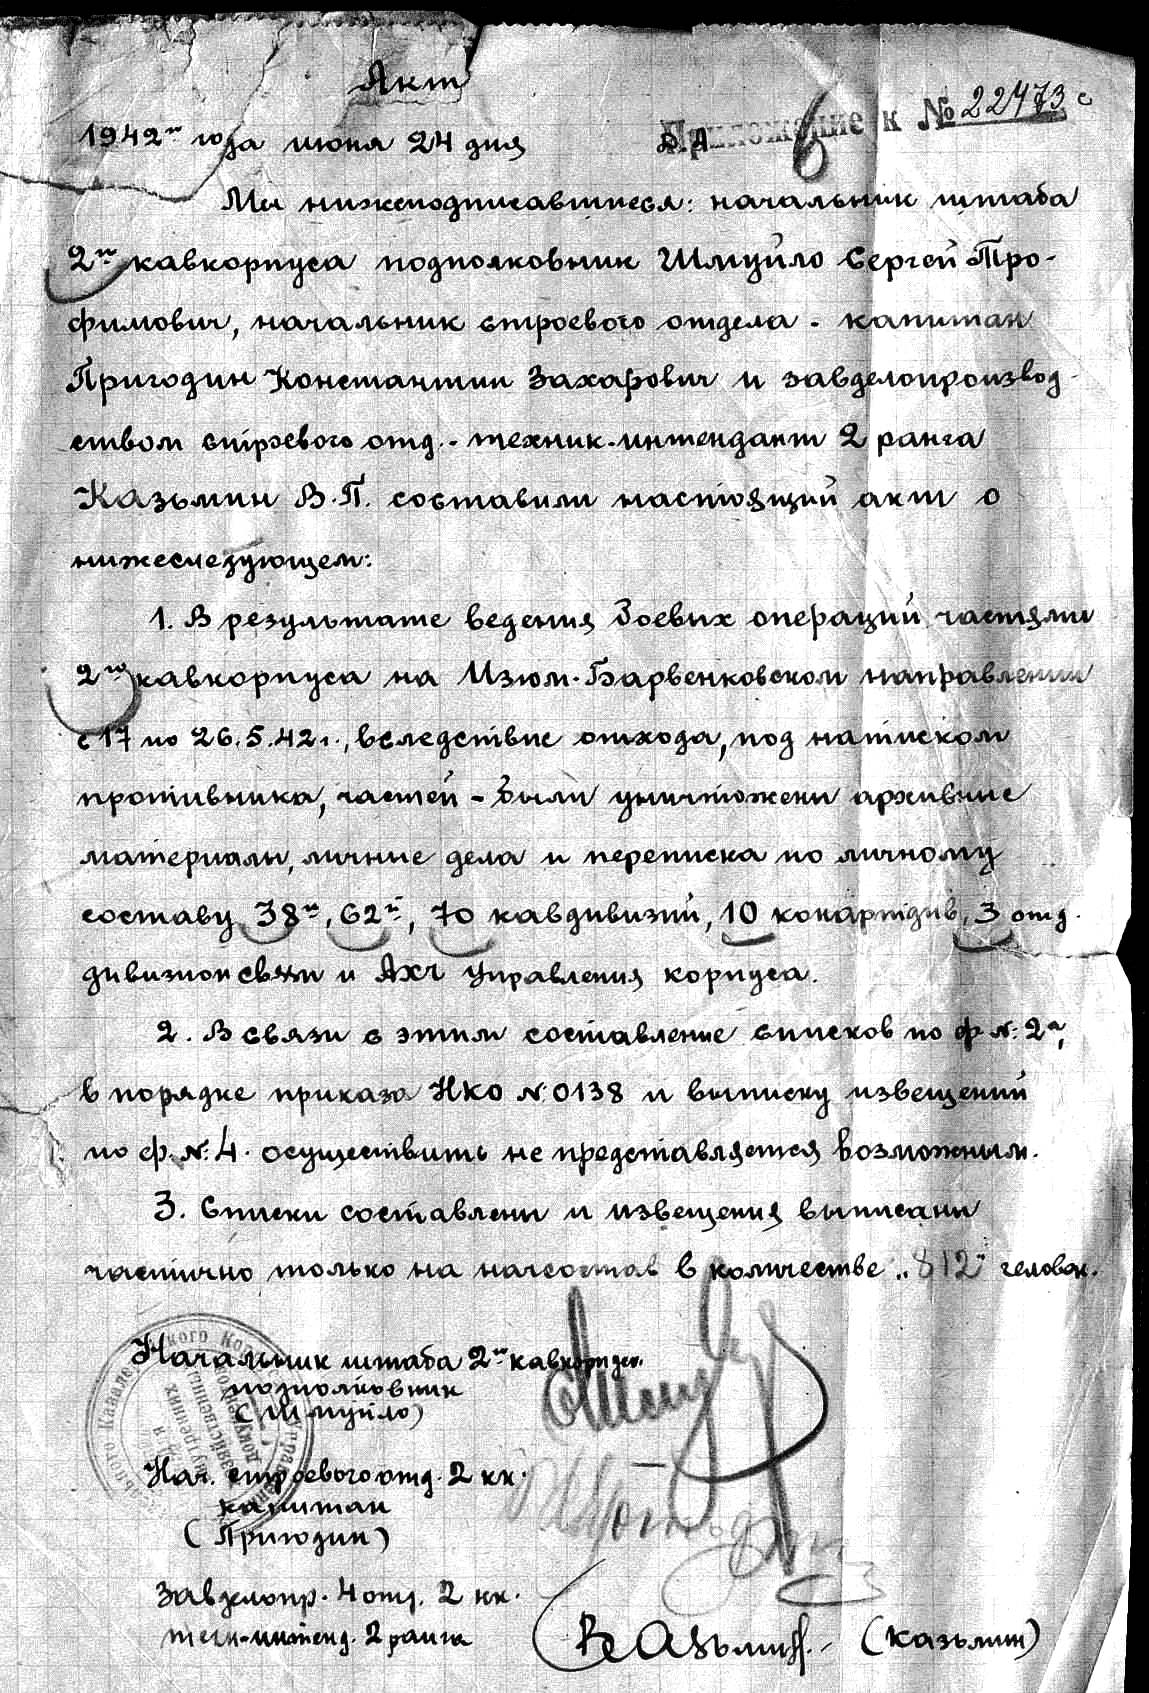 Акт
Приложение к № 22473 с
1942го года июня 24 дня Д А 6
Мы нижеподписавшиеся: начальник штаба
2го кавкорпуса подполковник Шмуйло Сергей Тро-
фимович, начальник строевого отдела - капитан
Пригодин Константин Захарович и завделопроизвод-
ством строевого отд. - техник-интендант 2 ранга
Казьмин В.П. составили настоящий акт о
нижеследующем:
1. В результате ведения боевых операций частями
2го кавкорпуса на Изюм-Барвенковском направлении
с 17 по 26.5.42 г., вследствие отхода, под натиском
противника, частей - были уничтожены архивные
материалы, личные дела и переписка по личному
составу 38й, 62й, 70 кавдивизий, 10 конартдив, 3 отд.
дивизион связи и АХЧ управления корпуса.
2. В связи с этим составление списков по ф №: 2а,
в порядке приказа НКО № 0138 и выписку извещений
по ф. №: 4. осуществить не представляется возможным.
3. Списки составлены и извещения выписаны
частично только на начсостав в количестве „812" человек.
Начальник штаба 2го кавкорпуса.
подполковник
(Шмуйло)
Нач. строевого отд. 2 кк.
капитан
(Пригодин)
Завделопр. 4 отд. 2 кк.
техн-интенд. 2 ранга Казьмин. (Казьмин)